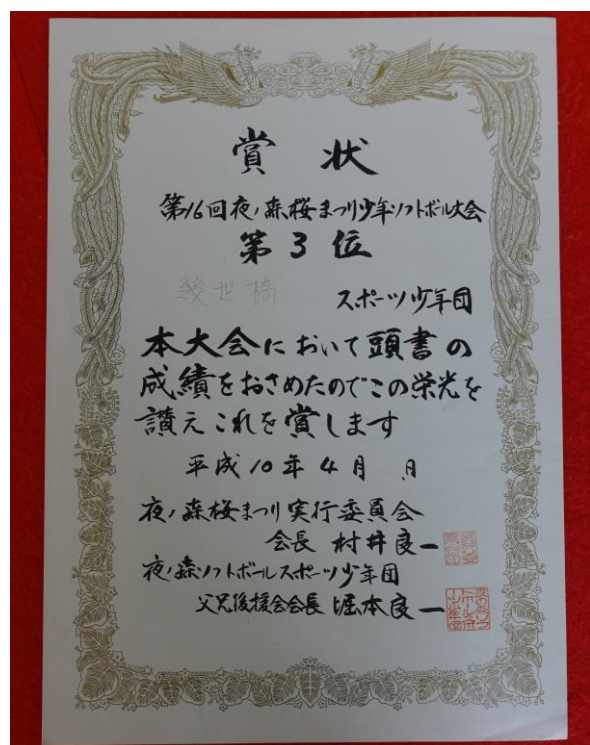 賞状
第16回夜ノ森桜まつり少年ソフトボール大会
第3位
幾世橋 スポーツ少年団
本大会において頭書の
成績をおさめたのでこの栄光を
讃えこれを賞します
平成10年4月 日
夜ノ森桜まつり実行委員会
会長 村井良一
夜ノ森ソフトボールスポーツ少年団
父兄後援会会長 堀本良一